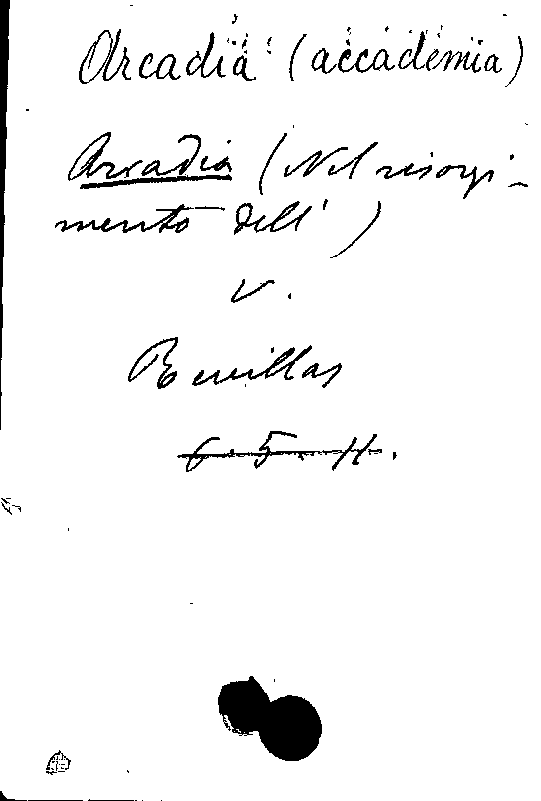 Arcadia (accademia)
Arcadia (Nel risorgi-
mento dell')
v.
Revillas
6.5.11.